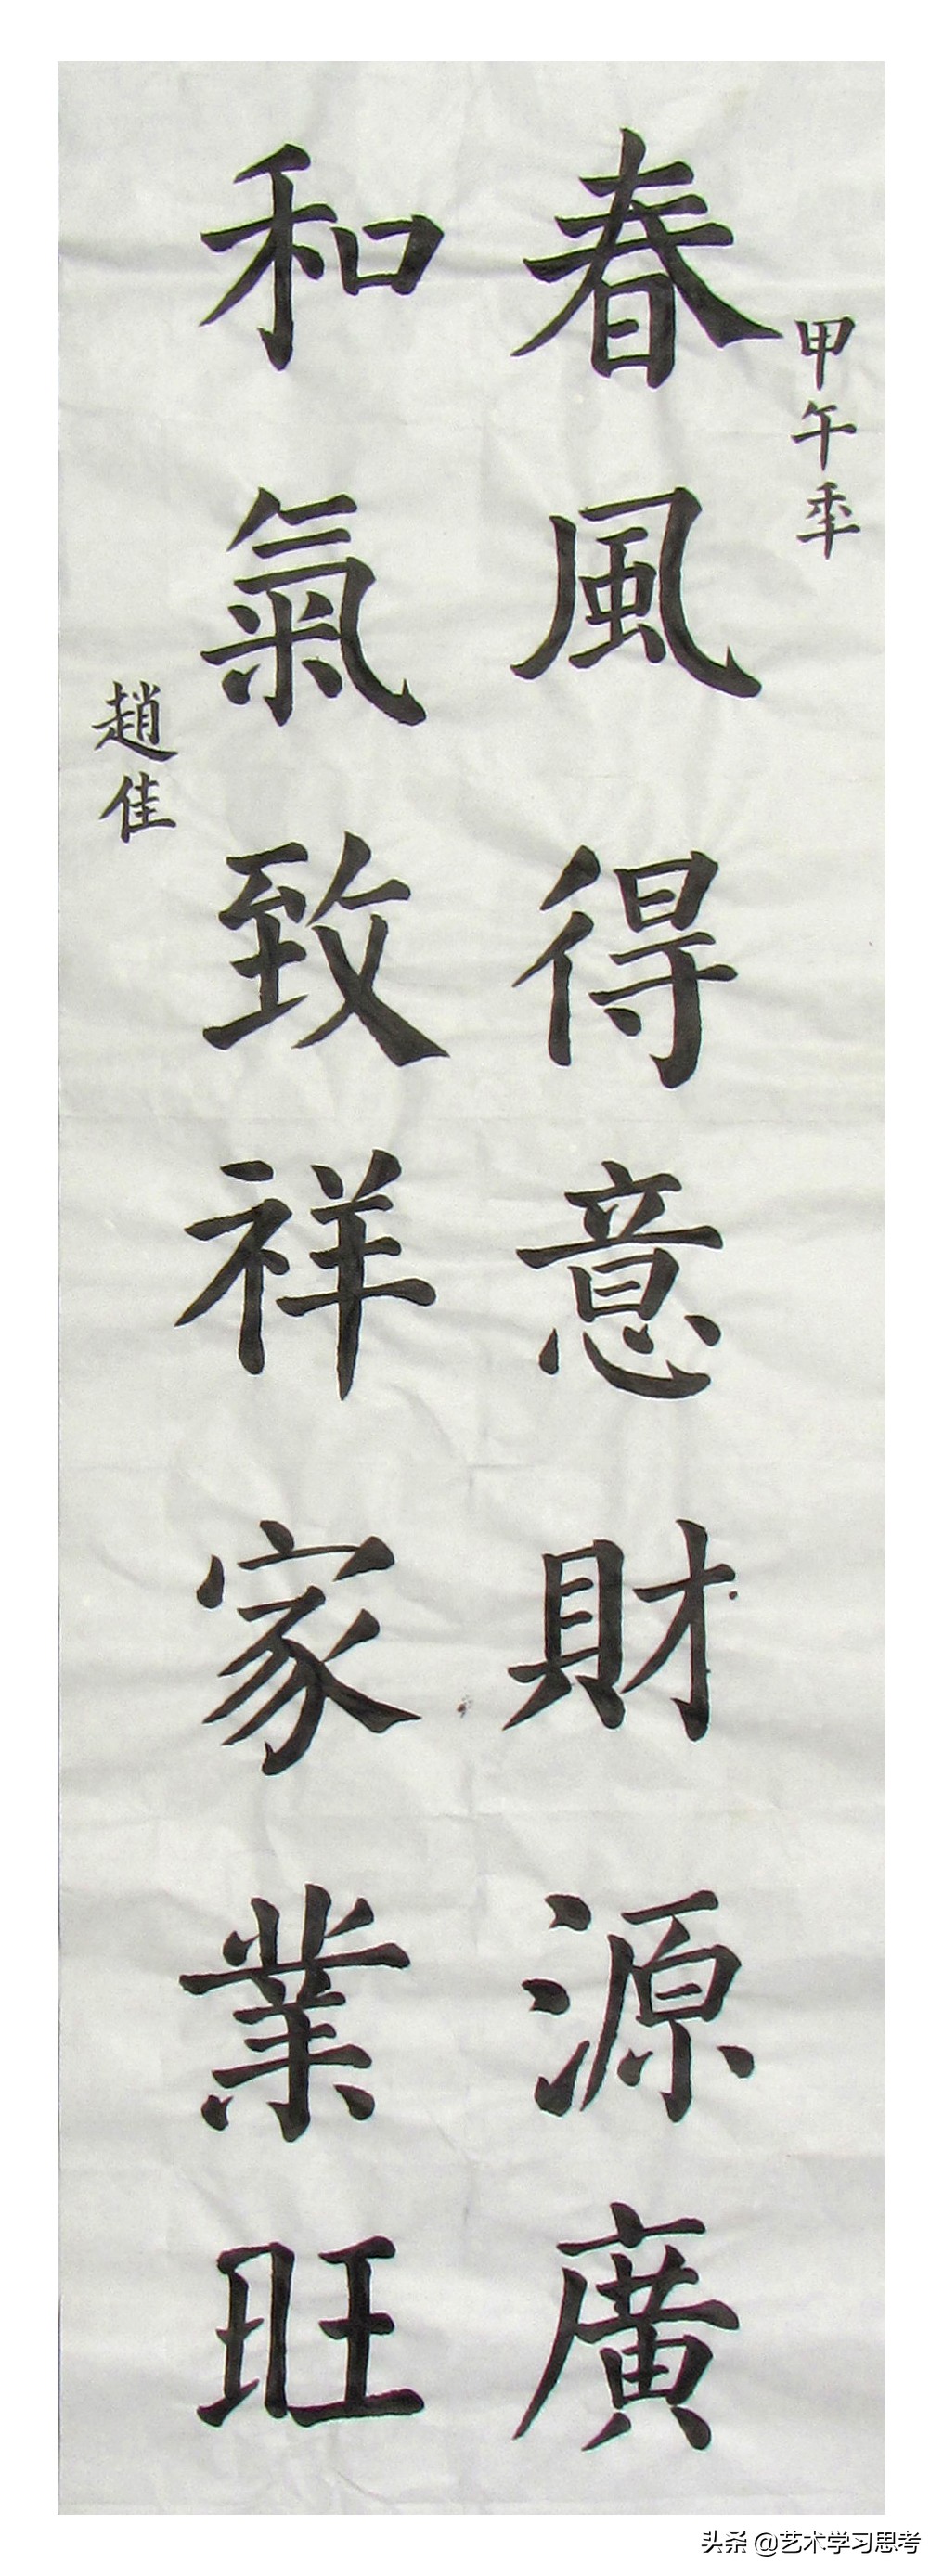 甲午年
春風得意財源廣
和氣致祥家業旺
趙佳
头条 @艺术学习思考